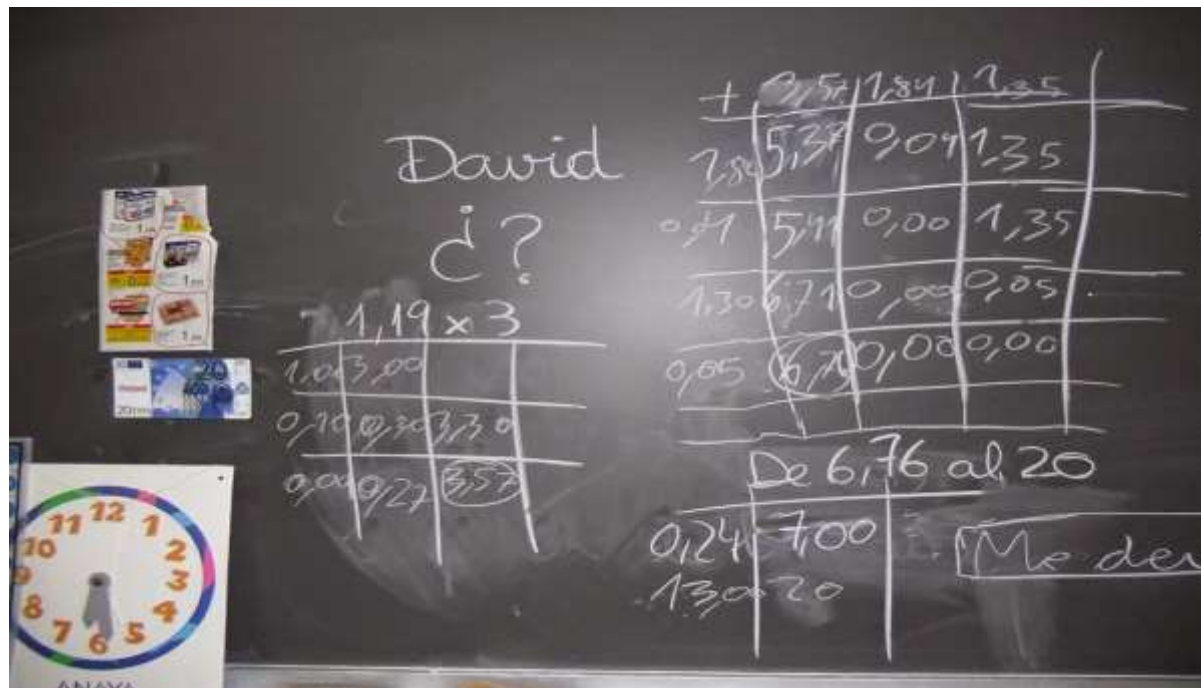 David
¿?
1,19 x 3
1,00 3,00
0,10 0,30 3,30
0,09 0,27 3,57
+ 3,57 1,84 1,35
1,80 5,37 0,04 1,35
0,04 5,41 0,00 1,35
1,30 6,71 0,00 0,05
0,05 6,76 0,00 0,00
De 6,76 al 20
0,24 7,00
13,00 20
Me dev
20
11 12 1
10 2
9 3
8 4
7 6 5
ANAYA